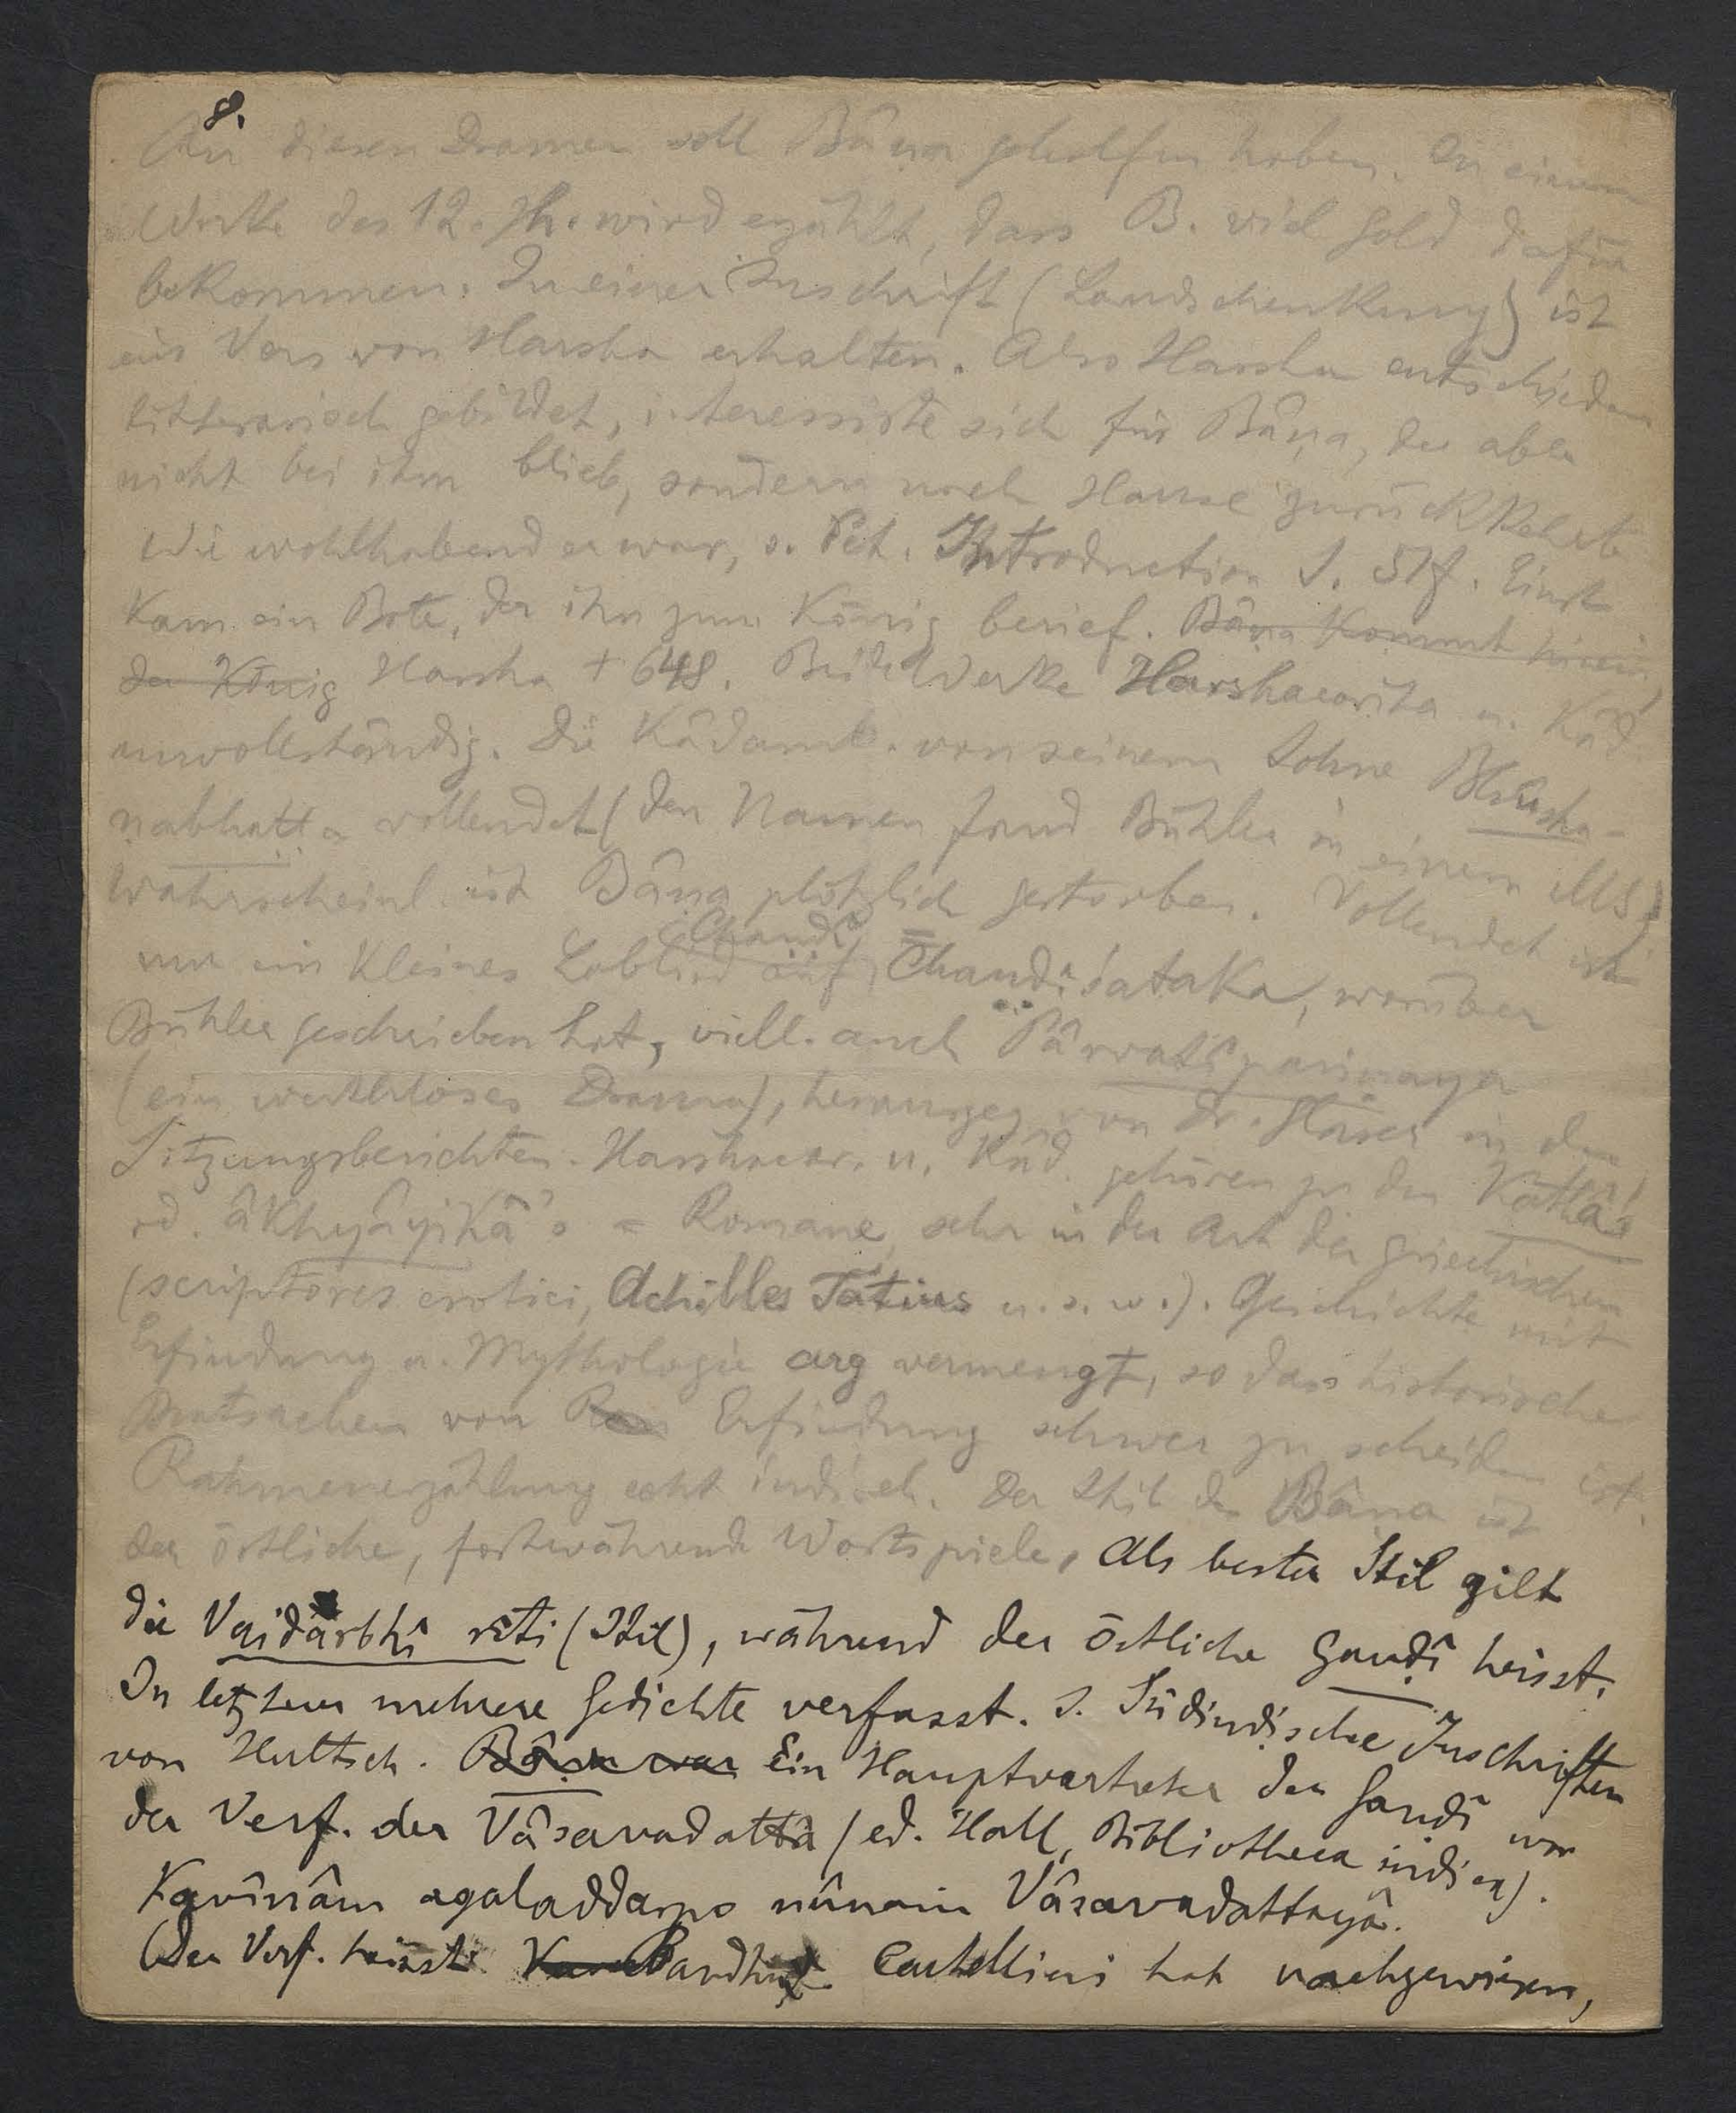 8.
An diesen Dramen soll Bâṇa geholfen haben. In einem
Werke des 12. Jh. wird erzählt, dass B. viel Gold dafür
bekommen. In einer Inschrift (Landschenkung) ist
ein Vers von Harsha erhalten. Also Harsha entschieden
litterarisch gebildet, interessirte sich für Bâṇa, der aber
nicht bei ihm blieb, sondern nach Hause zurückkehrte
Wie wohlhabend er war, s. Pet. Introduction S. 51f. Einst
kam ein Bote, der ihn zum König berief. Bâṇa kommt hinein,
der König Harsha † 648. Beide Werke Harshacarita u. Kâd.
unvollständig. Die Kâdamb. von seinem Sohne Bhûsha-
ṇabhaṭṭa vollendet (den Namen fand Bühler in einem MS)
Wahrscheinl. ist Bâṇa plötzlich gestorben. Vollendet ist
nur ein kleines Loblied auf Chandî = Chaṇḍiśataka, worüber
Bühler geschrieben hat, viell. auch Pârvatîpariṇaya
(ein werthloses Drama), herausgeg. von Dr. Glaser in den
Sitzungsberichten. Harshacar. u. Kâd. gehören zu den Kathâs
od. âkhyâyikâ's = Romane, sehr in der Art der griechischen
(scriptores erotici, Achilles Tatius u.s.w.). Geschichte mit
Erfindung u. Mythologie arg vermengt, so dass historische
Thatsachen von Erfindung schwer zu scheiden ist.
Rahmenerzählung echt indisch. Der Stil des Bâṇa ist
der östliche, fortwährende Wortspiele, Als bester Stil gilt
die Vaidarbhî rîti (Stil), während der östliche Gauḍî heisst.
In letzterer mehrere Gedichte verfasst. S. Südindische Inschriften
von Hultsch. Bâṇa war Ein Hauptvertreter der Gauḍî war
der Verf. der Vâsavadattâ (ed. Hall, Bibliotheca indica).
Kavînâm agaladdarpo nûnam Vâsavadattayâ.
(Der Verf. heisst Cartellieri hat nachgewiesen,